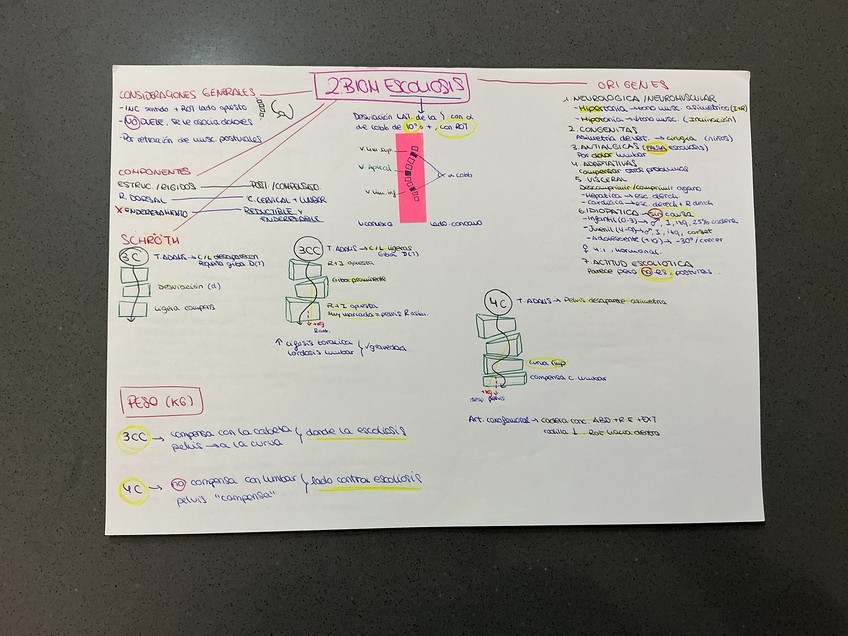 2. BIOM ESCOLIOSIS
CONSIDERACIONES GENERALES
- INC sentido + ROT lado opuesto
- NO DUELE. Se le asocia dolores
- Por retracción de musc posturales
COMPONENTES
ESTRUC./RIGIDOS POST./COMPUESTO
R. DORSAL C. CERVICAL + LUMBAR
X ENDEREZAMIENTO REDUCTIBLE Y ENDEREZABLE
Desviación LAT. de la con α
de cobb de 10º +, con ROT
V. lim sup
V. Apical
V. lim. inf
α cobb
V convexa lado concavo
ORIGENES
1. NEUROLOGICA/NEUROMUSCULAR
- Hipertonia → tono musc. asimetrico (I+R)
- Hipotonia → tono musc (Inclinación)
2. CONGENITAS
Asimetria de vert. → cirugia (niños)
3. ANTIALGICAS (FALSA escoliosis)
Por dolor lumbar
4. ADAPTATIVAS
Compensar otros problemas
5. VISCERAL
Descomprimir/comprimir organo
- Hepatica → esc derch
- Cardiaca → esc derech + R derch
6. IDIOPATICA → sin causa
- Infantil (0-3) → ♂, I, 149, 25% cadera
- Juvenil (4-9) → ♂, I, 149, corset
- Adolescente (+10) → -30º/crecer
♀ 4:1 hormonal
7. ACTITUD ESCOLIOTICA
Parece pero no es, posturas...
SCHROTH
3C
T. ADAMS → C/L desaparecen
Pequeña giba D(T)
Desviación (d)
ligera compens
3CC
T. ADAMS → C/L ligeras
Giba D(T)
R + I opuesta
Giba prominente
R + I opuesta
Muy marcada = pelvis R asim.
+KG
↑ cifosis toracica
lordosis lumbar
gravedad
4C
T. ADAMS → Pelvis desaparece asimetria
curva imp
compensa C. lumbar
+KG
pelvis
Art. coxofemoral → cadera conc. ABD + R.E + EXT
rodilla ↓ Rot hacia dentro
PESO (KG)
3CC → compensa con la cabeza
pelvis → a la curva
donde la escoliosis
4C → no compensa con lumbar
pelvis "compensa"
lado contra escoliosis